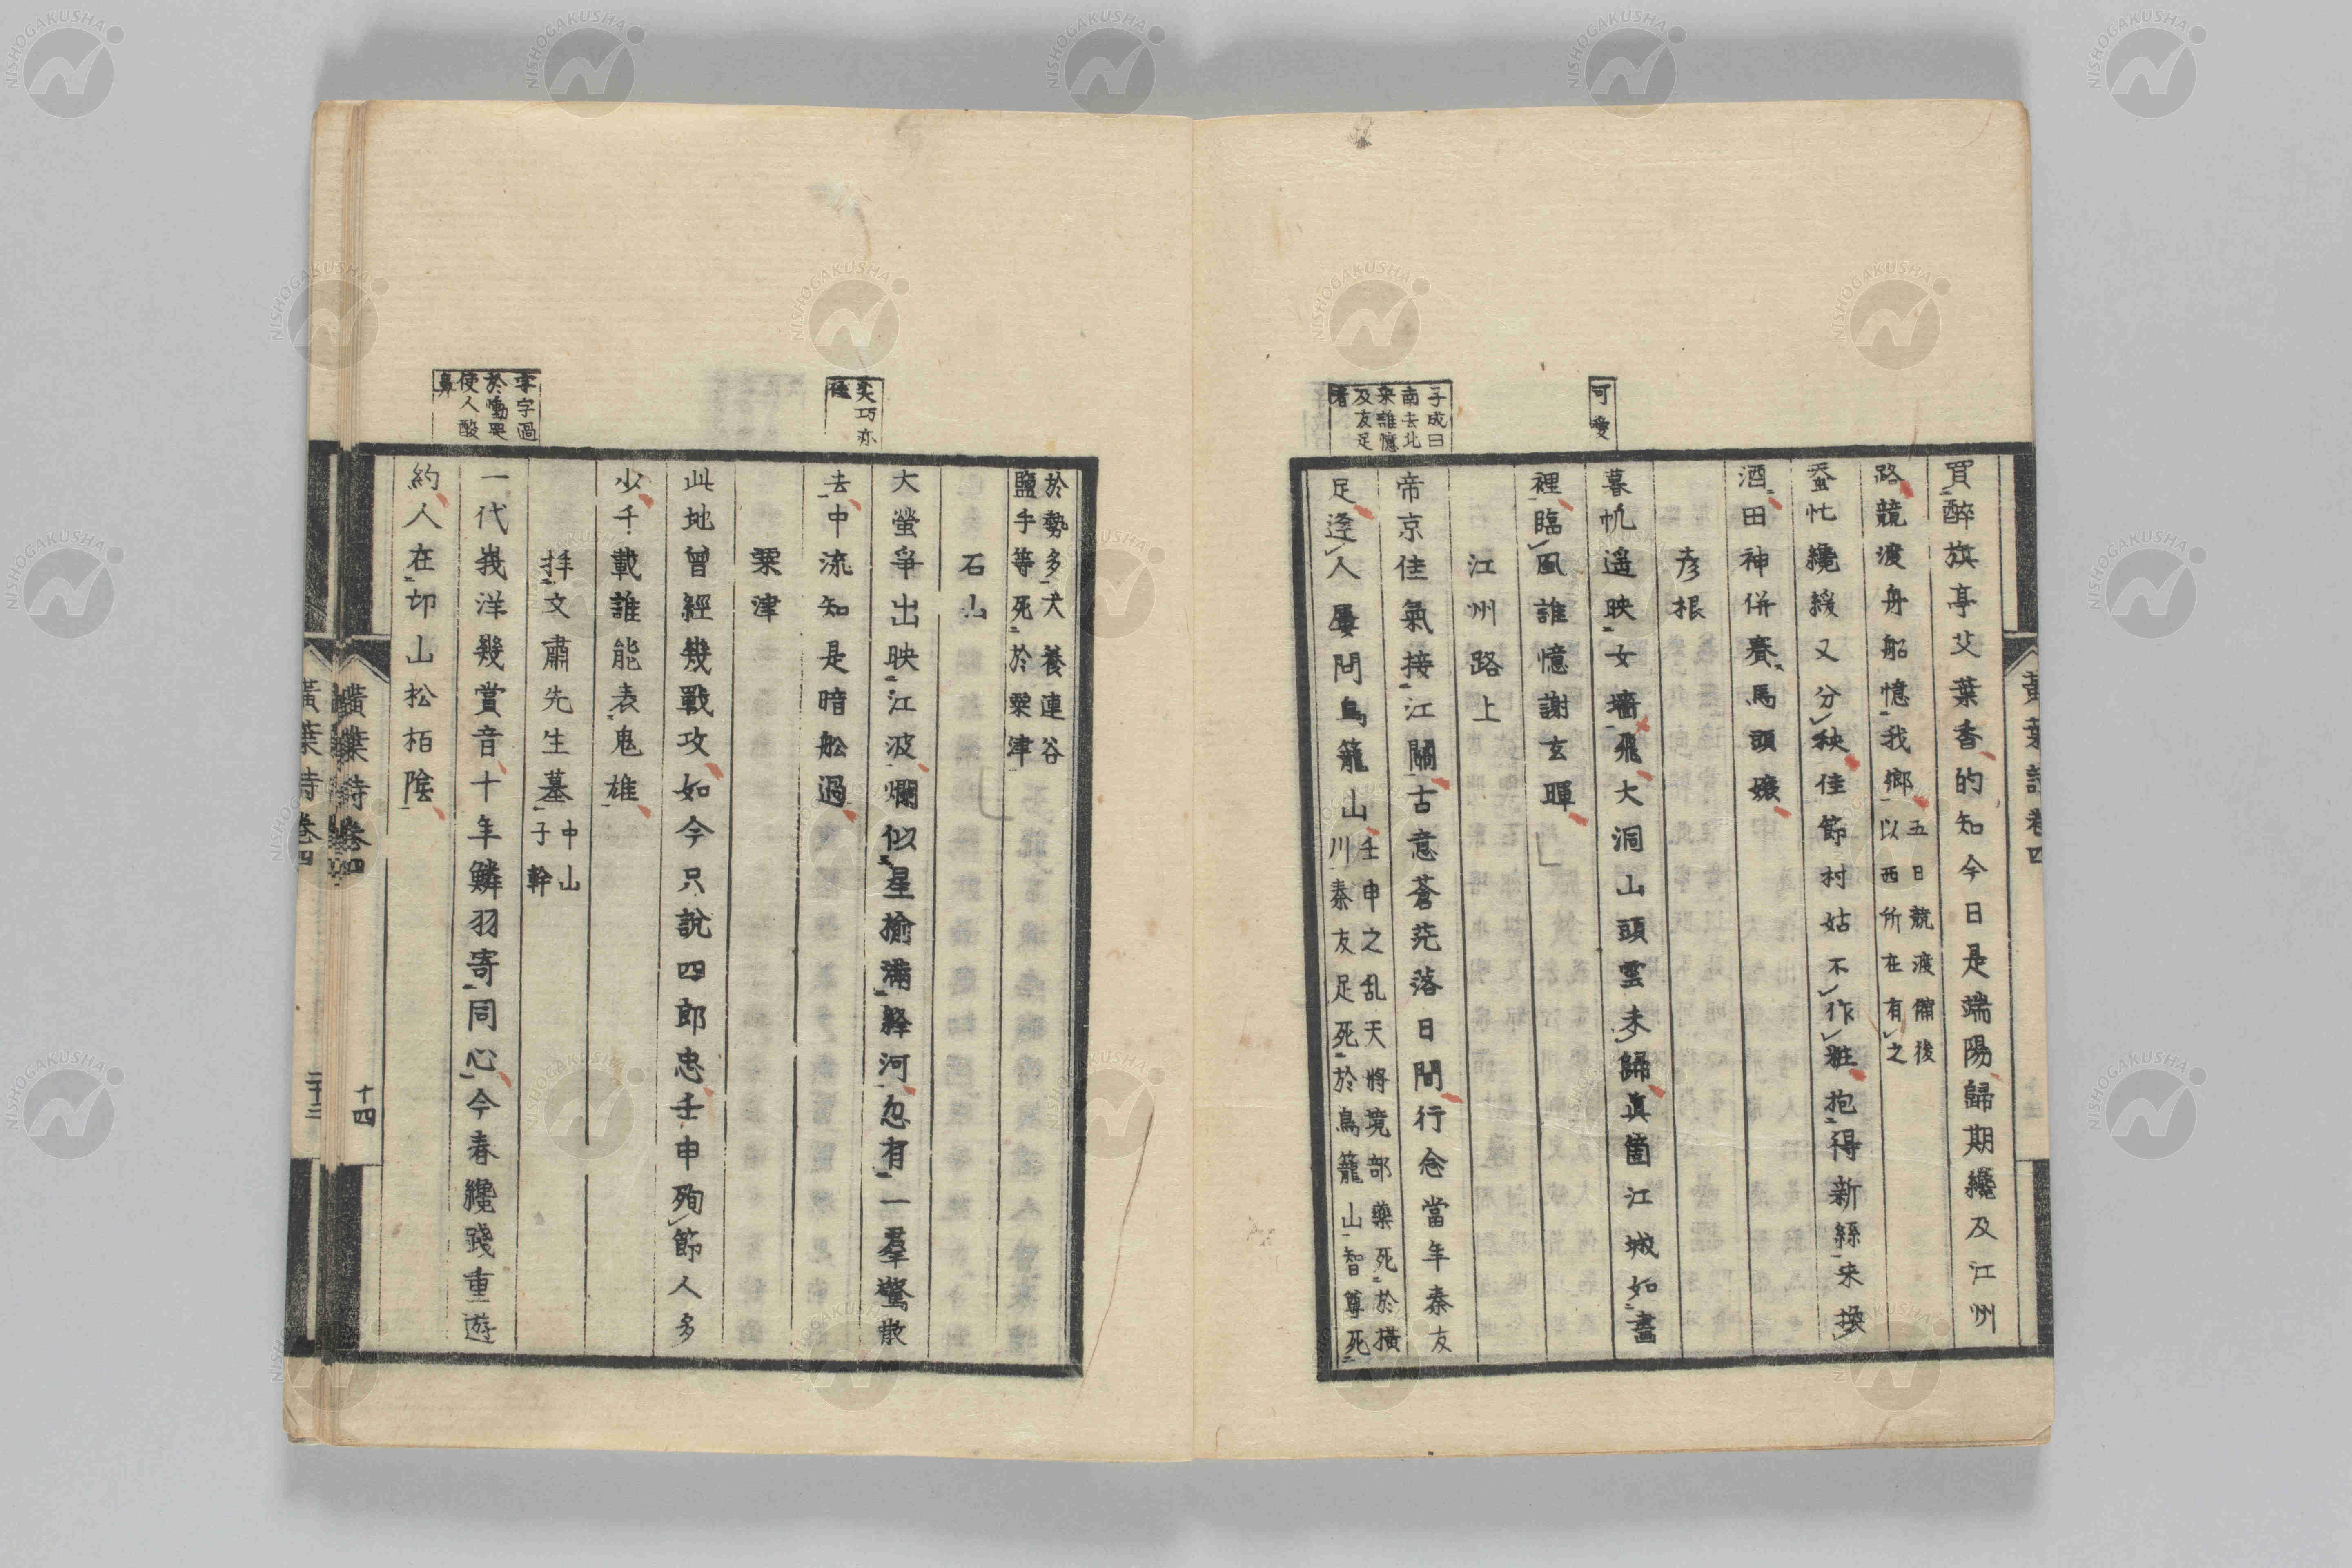 黃葉詩卷四
可愛
子成曰
南去北
来誰憶
及友足
者
買醉旗亭艾葉香的知今日是端陽歸期纔及江州
路競渡舟船憶我鄉
五日競渡備後
以西所在有之
蚕忙纔緩又分秧佳節村姑不作粧抱得新絲来換
酒田神併賽馬頭孃
彦根
暮帆遥映女墻飛大洞山頭雲未歸真箇江城如畫
裡臨風誰憶謝玄暉
江州路上
帝京佳氣接江關古意蒼茫落日間行念當年秦友
足逢人屢問鳥籠山
壬申之乱天將境部藥死於橫
川秦友足死於鳥籠山智尊死
於勢多犬養連谷
鹽手等死於粟津
石山
大螢爭出映江波爛似星揄滿絳河忽有一羣驚散
去中流知是暗舩過
粟津
此地曾經幾戰攻如今只說四郎忠壬申殉節人多
少千載誰能表鬼雄
拝文肅先生墓
中山
子幹
一代峩洋幾賞音十年鱗羽寄同心今春纔踐重遊
約人在卭山松栢陰
字字過
於慟哭
使人酸
鼻
黃葉詩卷四
十四
黃葉詩卷四